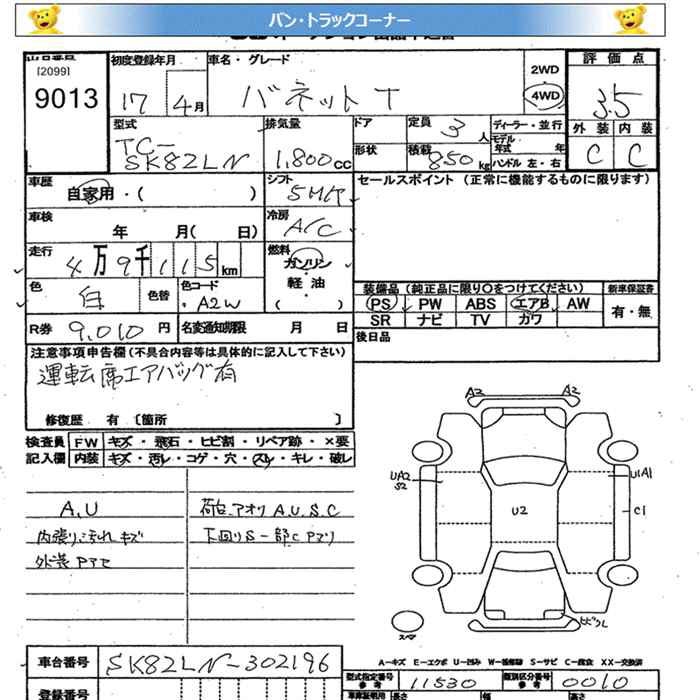 バン・トラックコーナー
[2099]
9013
初度登録年月
17 4月
車名・グレード
バネットT
2WD
4WD
評価点
3.5
外装 内装
C C
型式
TC-
SK82LN
排気量
1,800cc
ドア
形状
定員 3人
積載 850kg
ディーラー・並行
モデル年式 年
ハンドル 左・右
車歴
自家用・( )
シフト
5MT
セールスポイント (正常に機能するものに限ります)
車検
年 月( 日)
冷房
A/C
走行
4万9千115km
燃料
ガソリン
軽油
( )
色
白
色替
色コード
A2W
装備品(純正品に限り○をつけてください)
新車保証書
PS PW ABS エアB AW
SR ナビ TV ガワ
有・無
R券 9,010円
名変通知期限 月 日
後日品
注意事項申告欄(不具合内容等は具体的に記入して下さい)
運転席エアバッグ有
修復歴 有〔箇所 〕
検査員 FW キズ・飛石・ヒビ割・リペア跡・×要
記入欄 内装 キズ・汚レ・コゲ・穴・スレ・キレ・破レ
A,U
荷台、アオリ A.U.S.C
内張リ汚れキズ
下回りS一部Cアリ
A2
A2
UA2
S2
U2
U1A1
C1
スペア
A-キズ E-エクボ U-凹み W-補修跡 S-サビ C-腐食 XX-交換済
車台番号
SK82LN-302196
型式指定番号
参考
11530
類別区分番号
参考
0010
長さ
幅
高さ